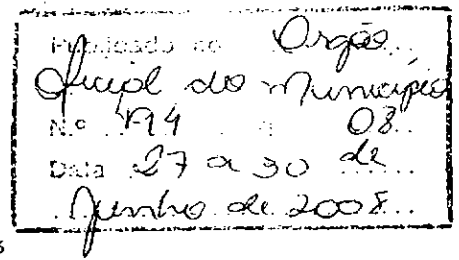 Publicado no Orgão
Oficial do Município
N.º 194 a 08
Data 27 a 30 de
Junho de 2008